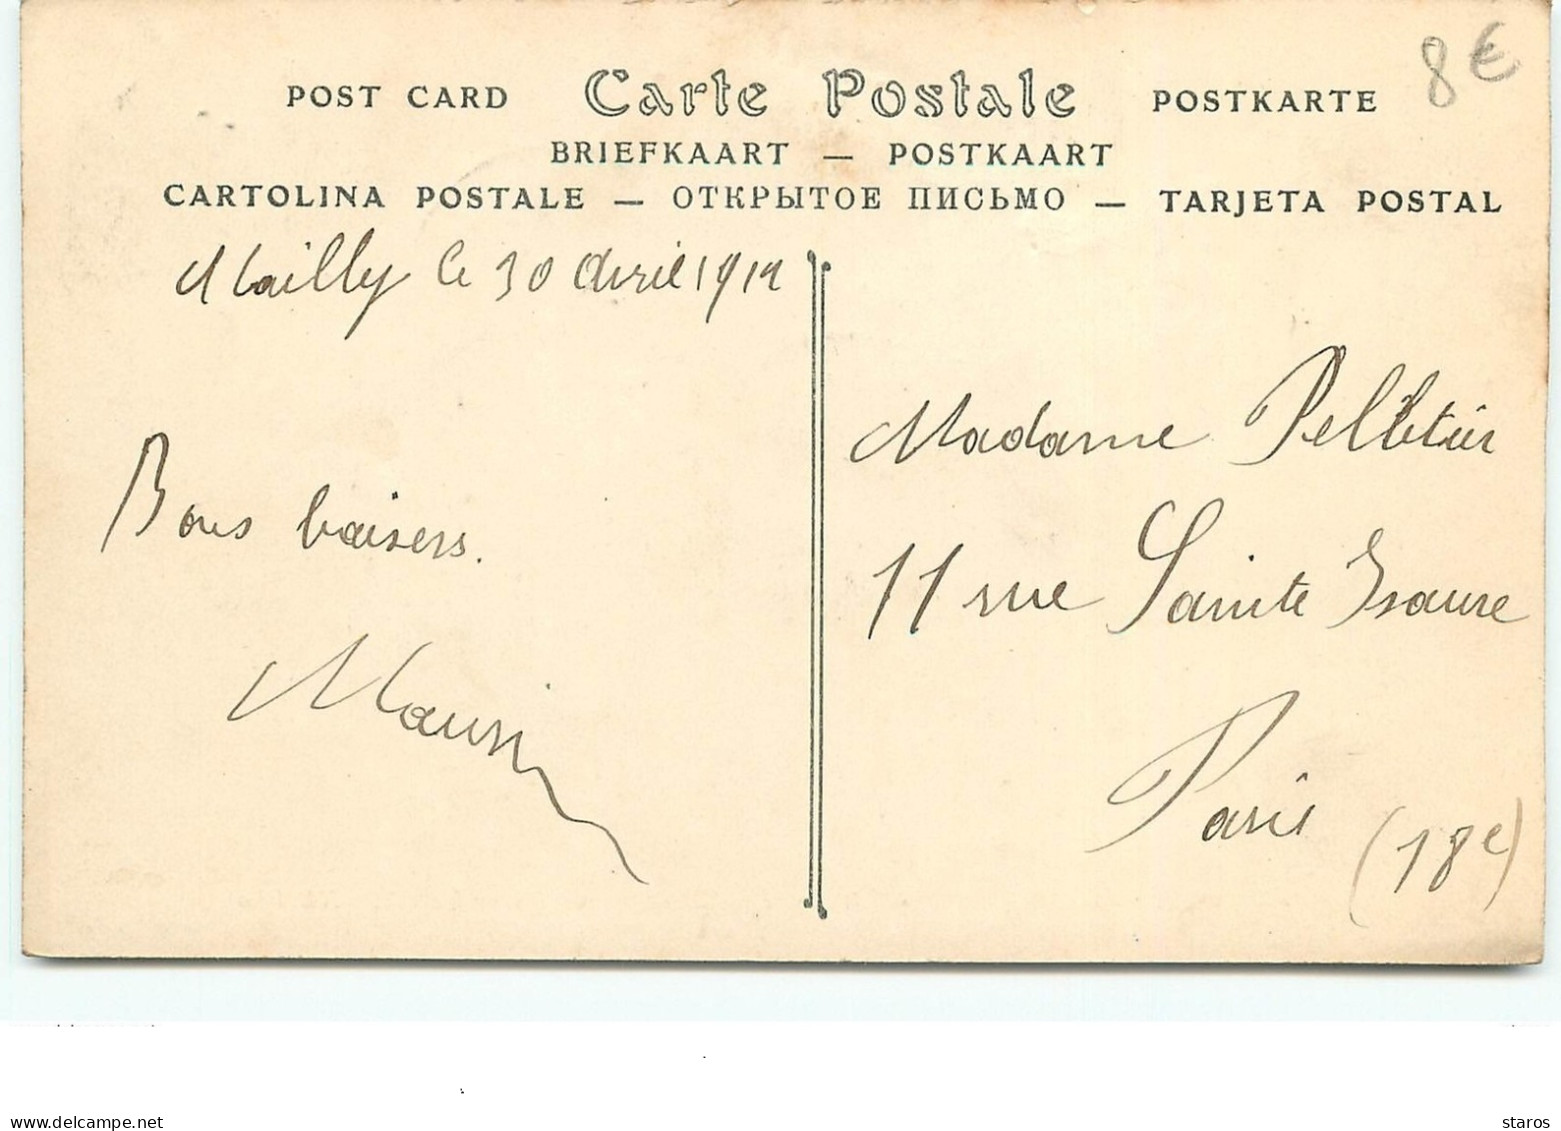 8€
POST CARD Carte Postale POSTKARTE
BRIEFKAART — POSTKAART
CARTOLINA POSTALE — ОТКРЫТОЕ ПИСЬМО — TARJETA POSTAL
Mailly le 30 Avril 1912
Bons baisers.
Maurice
Madame Pelletier
11 rue Sainte Isaure
Paris (18e)
www.delcampe.net
staros